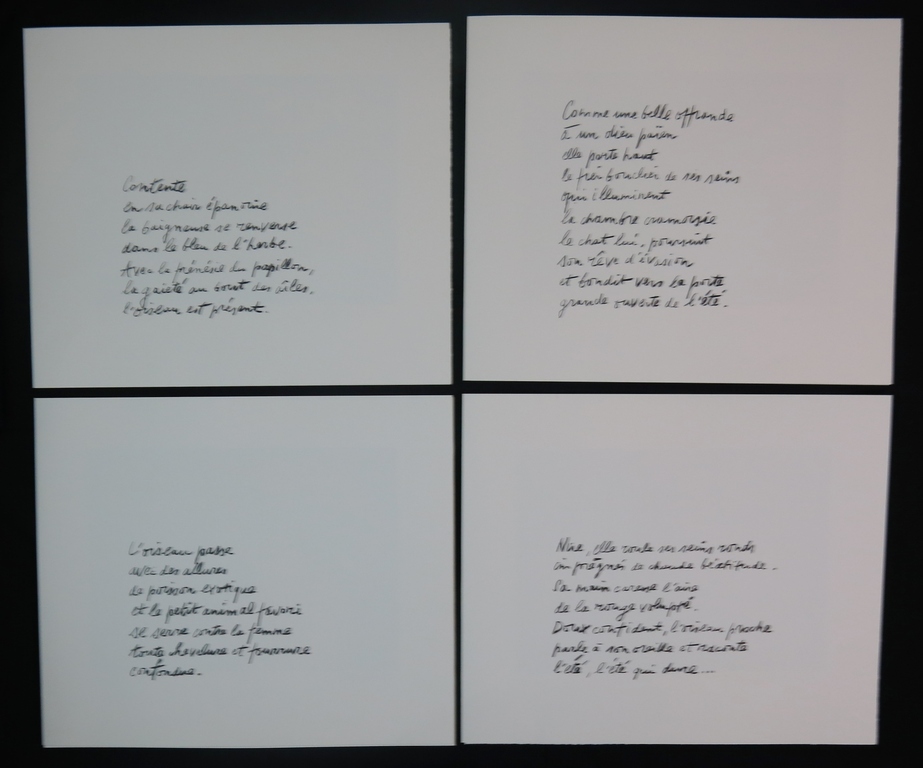 Contente
en sa chair épanouie
la baigneuse se renverse
dans le bleu de l'herbe.
Avec la frénésie du papillon,
la gaieté au bout des ailes,
l'oiseau est présent.
Comme une belle offrande
à un dieu païen
elle porte haut
le fier bouclier de ses seins
qui illuminent
la chambre cramoisie
le chat lui, poursuit
son rêve d'évasion
et bondit vers la porte
grande ouverte de l'été.
L'oiseau passe
avec des allures
de poisson exotique
et le petit animal favori
se serre contre la femme
toute chevelure et fourrure
confondue.
Nue, elle roule ses seins ronds
imprégnés de chaude béatitude.
Sa main caresse l'aine
de la rouge volupté.
Doux confident, l'oiseau proche
parle à son oreille et raconte
l'été, l'été qui dure...